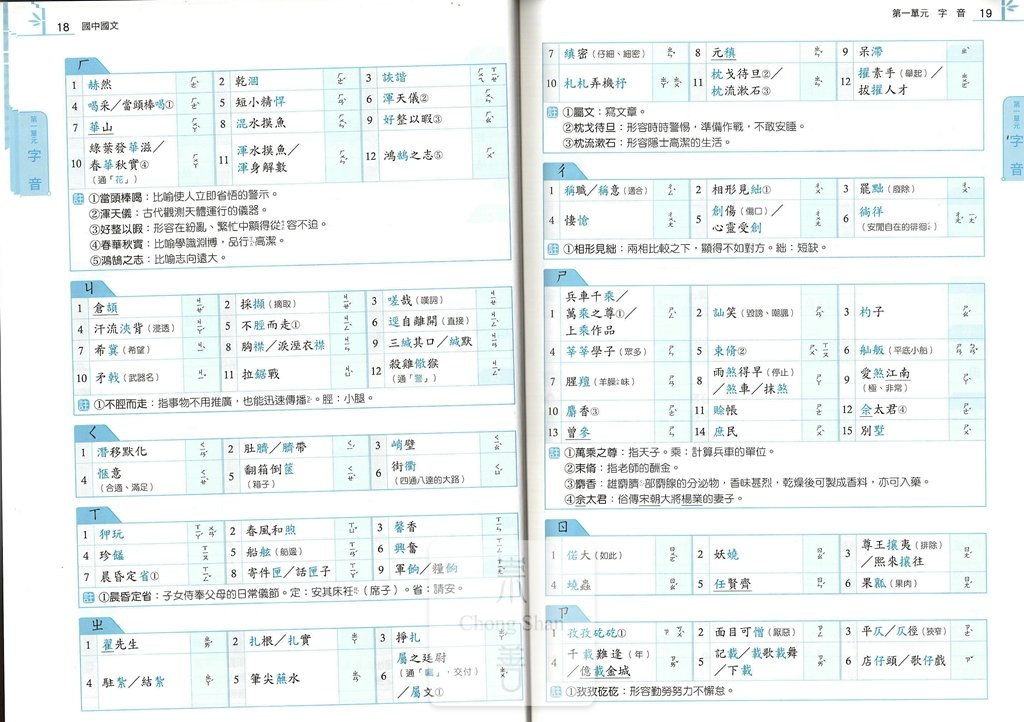 18 國中國文
第一單元 字音
ㄏ
1 赫然 ㄏㄜˋ 2 乾涸 ㄏㄜˊ 3 詼諧 ㄏㄨㄟ ㄒㄧㄝˊ
4 喝采/當頭棒喝① ㄏㄜˋ 5 短小精悍 ㄏㄢˋ 6 渾天儀② ㄏㄨㄣˊ
7 華山 ㄏㄨㄚˋ 8 混水摸魚 ㄏㄨㄣˋ 9 好整以暇③ ㄏㄠˋ
10 綠葉發華滋/春華秋實④(通「花」) ㄏㄨㄚ 11 渾水摸魚/渾身解數 ㄏㄨㄣˊ 12 鴻鵠之志⑤ ㄏㄨˊ
註 ①當頭棒喝:比喻使人立即省悟的警示。
②渾天儀:古代觀測天體運行的儀器。
③好整以暇:形容在紛亂、繁忙中顯得從容不迫。
④春華秋實:比喻學識淵博,品行高潔。
⑤鴻鵠之志:比喻志向遠大。
ㄐ
1 倉頡 ㄐㄧㄝˊ 2 採擷(摘取) ㄐㄧㄝˊ 3 嗟哉(嘆詞) ㄐㄧㄝ
4 汗流浹背(浸透) ㄐㄧㄚ 5 不脛而走① ㄐㄧㄥˋ 6 逕自離開(直接) ㄐㄧㄥˋ
7 希冀(希望) ㄐㄧˋ 8 胸襟/淚溼衣襟 ㄐㄧㄣ 9 三緘其口/緘默 ㄐㄧㄢ
10 矛戟(武器名) ㄐㄧˇ 11 拉鋸戰 ㄐㄩˋ 12 殺雞儆猴(通「警」) ㄐㄧㄥˇ
註 ①不脛而走:指事物不用推廣,也能迅速傳播。脛:小腿。
ㄑ
1 潛移默化 ㄑㄧㄢˊ 2 肚臍/臍帶 ㄑㄧˊ 3 峭壁 ㄑㄧㄠˋ
4 愜意(合適、滿足) ㄑㄧㄝˋ 5 翻箱倒篋(箱子) ㄑㄧㄝˋ 6 街衢(四通八達的大路) ㄑㄩˊ
ㄒ
1 狎玩 ㄒㄧㄚˊ ㄨㄢˊ 2 春風和煦 ㄒㄩˇ 3 馨香 ㄒㄧㄣ
4 珍饈 ㄒㄧㄡ 5 船舷(船邊) ㄒㄧㄢˊ 6 興奮 ㄒㄧㄥ
7 晨昏定省① ㄒㄧㄥˇ 8 寄件匣/話匣子 ㄒㄧㄚˊ 9 軍餉/糧餉 ㄒㄧㄤˇ
註 ①晨昏定省:子女侍奉父母的日常儀節。定:安其床衽(席子)。省:請安。
ㄓ
1 翟先生 ㄓㄞˊ 2 扎根/扎實 ㄓㄚ 3 掙扎 ㄓㄚˊ
4 駐紮/結紮 ㄓㄚˊ 5 筆尖蘸水 ㄓㄢˋ 6 屬之廷尉(通「囑」,交付)/屬文① ㄓㄨˇ
第一單元 字音 19
第一單元 字音
7 縝密(仔細、細密) ㄓㄣˇ 8 元稹 ㄓㄣˇ 9 呆滯 ㄓˋ
10 札札弄機杼 ㄓㄚˊ ㄓㄨˋ 11 枕戈待旦②/枕流漱石③ ㄓㄣˋ 12 擢素手(舉起)/拔擢人才 ㄓㄨㄛˊ
註 ①屬文:寫文章。
②枕戈待旦:形容時時警惕,準備作戰,不敢安睡。
③枕流漱石:形容隱士高潔的生活。
ㄔ
1 稱職/稱意(適合) ㄔㄥˋ 2 相形見絀① ㄔㄨˋ 3 罷黜(廢除) ㄔㄨˋ
4 悽愴 ㄔㄨㄤˋ 5 創傷(傷口)/心靈受創 ㄔㄨㄤ 6 徜徉(安閒自在的徘徊) ㄔㄤˊ ㄧㄤˊ
註 ①相形見絀:兩相比較之下,顯得不如對方。絀:短缺。
ㄕ
1 兵車千乘/萬乘之尊①/上乘作品 ㄕㄥˋ 2 訕笑(毀謗、嘲諷) ㄕㄢˋ 3 杓子 ㄕㄠˊ
4 莘莘學子(眾多) ㄕㄣ 5 束脩② ㄕㄨˋ ㄒㄧㄡ 6 舢舨(平底小船) ㄕㄢ ㄅㄢˇ
7 腥羶(羊臊味) ㄕㄢ 8 雨煞得早(停止)/煞車/抹煞 ㄕㄚ 9 愛煞江南(極、非常) ㄕㄚˋ
10 麝香③ ㄕㄜˋ 11 賒帳 ㄕㄜ 12 佘太君④ ㄕㄜˊ
13 曾參 ㄕㄣ 14 庶民 ㄕㄨˋ 15 別墅 ㄕㄨˋ
註 ①萬乘之尊:指天子。乘:計算兵車的單位。
②束脩:指老師的酬金。
③麝香:雄麝臍部麝腺的分泌物,香味甚烈,乾燥後可製成香料,亦可入藥。
④佘太君:俗傳宋朝大將楊業的妻子。
ㄖ
1 偌大(如此) ㄖㄨㄛˋ 2 妖嬈 ㄖㄠˊ 3 尊王攘夷(排除)/熙來攘往 ㄖㄤˇ
4 蟯蟲 ㄖㄠˊ 5 任賢齊 ㄖㄣˊ 6 果瓤(果肉) ㄖㄤˊ
ㄗ
1 孜孜矻矻① ㄗ ㄎㄨˋ 2 面目可憎(厭惡) ㄗㄥ 3 平仄/仄徑(狹窄) ㄗㄜˋ
4 千載難逢(年)/億載金城 ㄗㄞˇ 5 記載/載歌載舞/下載 ㄗㄞˋ 6 店仔頭/歌仔戲 ㄗˇ
註 ①孜孜矻矻:形容勤勞努力不懈怠。
Chong Shan
崇善